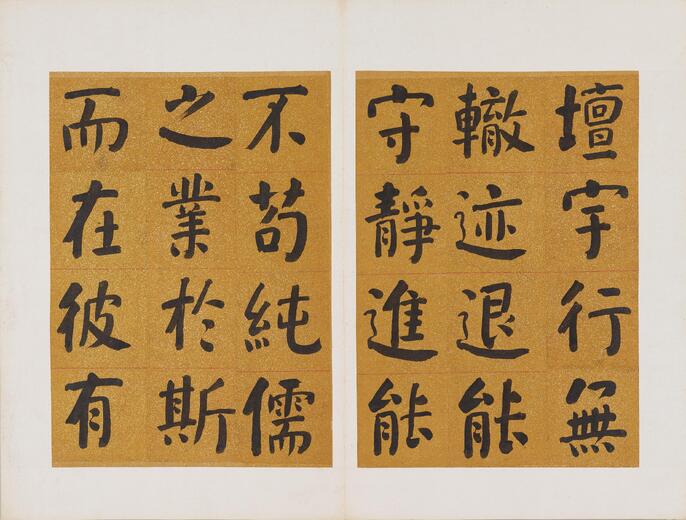 壇宇行無
轍迹退能
守靜進能
不苟純儒
之業於斯
而在彼有